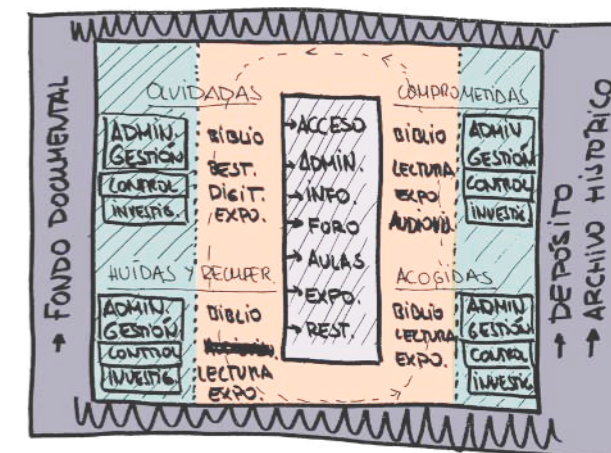 → FONDO DOCUMENTAL
OLVIDADAS
ADMIN.
GESTIÓN
CONTROL
INVESTIG.
BIBLIO
REST.
DIGIT.
EXPO.
HUÍDAS Y RECUPER.
ADMIN.
GESTIÓN
CONTROL
INVESTIG.
BIBLIO
LECTURA
EXPO.
→ACCESO
→ADMIN.
→INFO.
→FORO
→AULAS
→EXPO.
→REST.
COMPROMETIDAS
BIBLIO
LECTURA
EXPO
AUDIOVIS.
ADMIN
GESTIÓN
CONTROL
INVESTIG.
ACOGIDAS
BIBLIO
LECTURA
EXPO.
ADMIN
GESTIÓN
CONTROL
INVESTIG.
→ DEPÓSITO
→ ARCHIVO HISTÓRICO